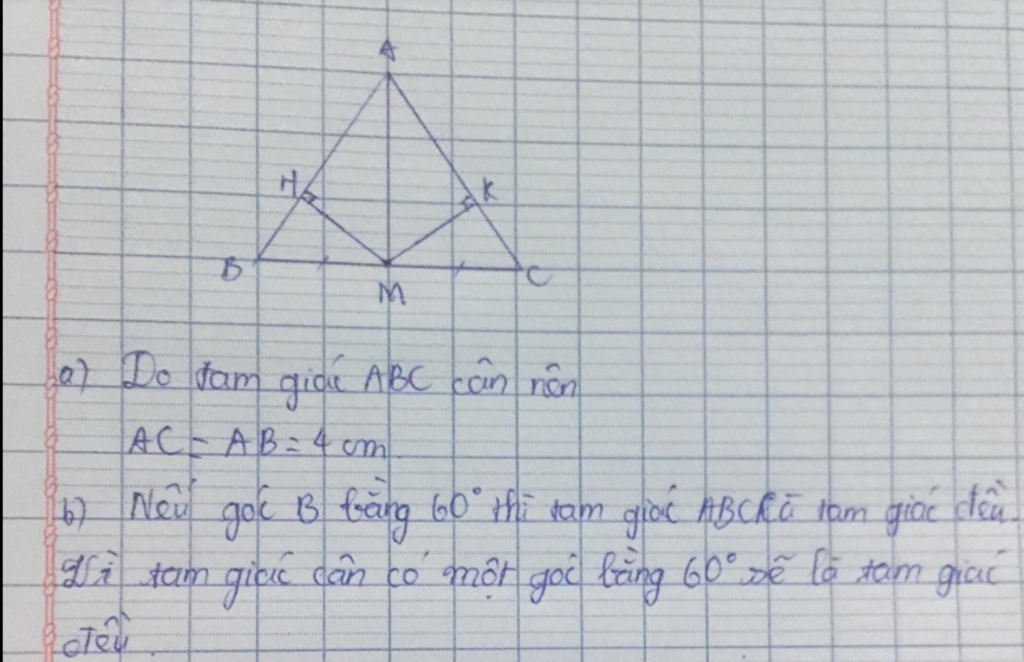 A
H
K
B
C
M
a) Do tam giác ABC cân nên
AC = AB = 4 cm
b) Nếu góc B bằng 60° thì tam giác ABC là tam giác đều.
Vì tam giác cân có một góc bằng 60° sẽ là tam giác
đều.